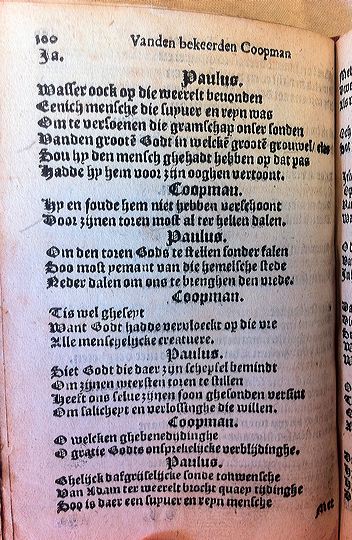 160 Vanden bekeerden Coopman
Ja.
Paulus.
Wasser oock op die weerelt bevonden
Eenich mensche die supver en reyn was
Om te versoenen die gramschap onser sonden
Vanden grootē Godt in welckē grootē grouwel/ elas
Sou hy den mensch ghehadt hebben op dat pas
Hadde hy hem voor zijn ooghen vertoont.
Coopman.
Hy en soude hem niet hebben verschoont
Door zijnen toren most al ter hellen dalen.
Paulus.
Om den toren Gods te stellen sonder falen
Soo most yemant van die hemelsche stede
Neder dalen om ons te brenghen den vrede.
Coopman.
Tis wel gheseyt
Want Godt hadde vervloeckt op die ure
Alle menschelijcke creatuere.
Paulus.
Siet Godt die daer zijn schepsel bemindt
Om zijnen weersten toren te stillen
Heeft ons selue zijnen soon ghesonden versint
Om salicheyt en verlossinghe die willen.
Coopman.
O welcken ghebenedijdinghe
O gratie Godts onsprekelijcke verblijdinghe.
Paulus.
Ghelijck dafgrijselijcke sonde tonwensche
Van Adam ter weerelt brocht quaey tijdinghe
Soo is daer een supver en reyn mensche
Met